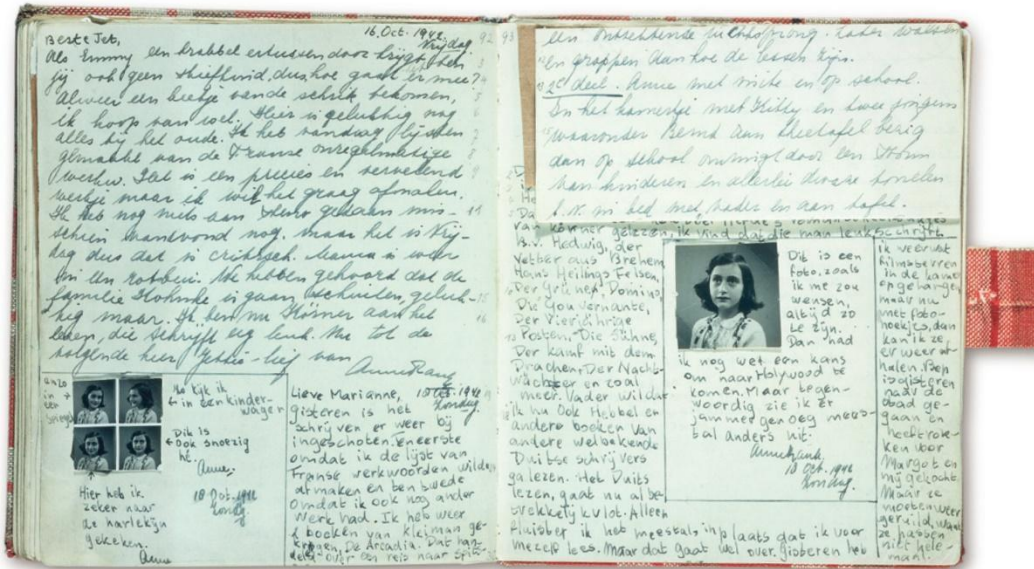 16 Oct. 1942
Vrijdag.
Beste Jet,
Als Emmy een krabbel ertussen door krijgt, ben
jij ook geen stiefkind, dus hoe gaat er mee?
Alweer een beetje van de schrik bekomen,
ik hoop van wel. Hier is gelukkig nog
alles bij het oude. Ik heb vandaag lijsten
gemaakt van de Franse onregelmatige
werkw. Het is een precies en vervelend
werkje maar ik wil het graag afmaken.
Ik heb nog niets aan steno gedaan mis-
schien vanavond nog. maar het is Vrij-
dag dus dat is critisch. Mama is weer
in een rotbui. We hebben gehoord dat de
familie
lig maar. Ik ben nu Körner aan het
lezen, die schrijft erg leuk. Nu tot de
volgende keer Jettie-lief van
Anne Frank
Nu kijk ik
in een kinder-
wagen
Dit is
ook snoezig
hè.
Anne,
Hier heb ik
zeker naar
de harlekijn
gekeken.
Anne
18 Oct. 1942
Zondag.
Lieve Marianne,
18 Oct. 1942
Zondag
gisteren is het
schrijven er weer bij
ingeschoten. eneerste
omdat ik de lijst van
Franse werkwoorden wilde
afmaken en ten twede
omdat ik ook nog ander
werk had. Ik heb weer
2 boeken van Kleiman ge-
kregen, De Arcadia. Dat han-
delt over een reis naar Spits-
92
93
en grappen aan hoe de lessen zijn.
2e deel. Anne met
op school.
In het kamertje met Hildy en twee jongens
waaronder Bernd aan theetafel bezig
dan op school omringd door een drom
van kinderen en allerlei dwaze tonelen
b.v. in bed met vader en aan tafel.
van Körner gelezen, ik vind dat die man leuk schrijft.
B.v. Hedwig, der
Vetter aus Bremen
Hans Heilings Felsen,
Der Grüner Domino,
Die Gouvernante,
Der Vierjährige
Posten, Die Sühne,
Der Kampf mit dem
Drachen, Der Nacht-
wächter en zoal
meer. Vader wil dat
ik nu ook Hebbel en
andere boeken van
andere welbekende
Duitse schrijvers
ga lezen. Het Duits
lezen, gaat nu al be-
trekkelijk vlot. Alleen
fluister ik het meestal, inplaats dat ik voor
mezelf lees. Maar dat gaat wel over, gisteren heb
Dit is een
foto, zoals
ik me zou
wensen,
altijd zo
te zijn.
Dan had
ik nog wel een kans
om naar Holywood te
komen. Maar tegen-
woordig zie ik er
jammer genoeg mees-
tal anders uit.
Anne Frank.
18 Oct. 1942
Zondag.
ik vervolgens
filmsterren
in de kamer
opgehangen
maar nu
met foto-
hoekjes, dan
kan ik ze
er weer af-
halen. Bep
is gisteren
naar de
stad ge-
gaan en
heeft rok-
ken voor
Margot en
mij gekocht.
Maar ze
moeten weer
geruild, want
ze passen
niet hele-
maal.